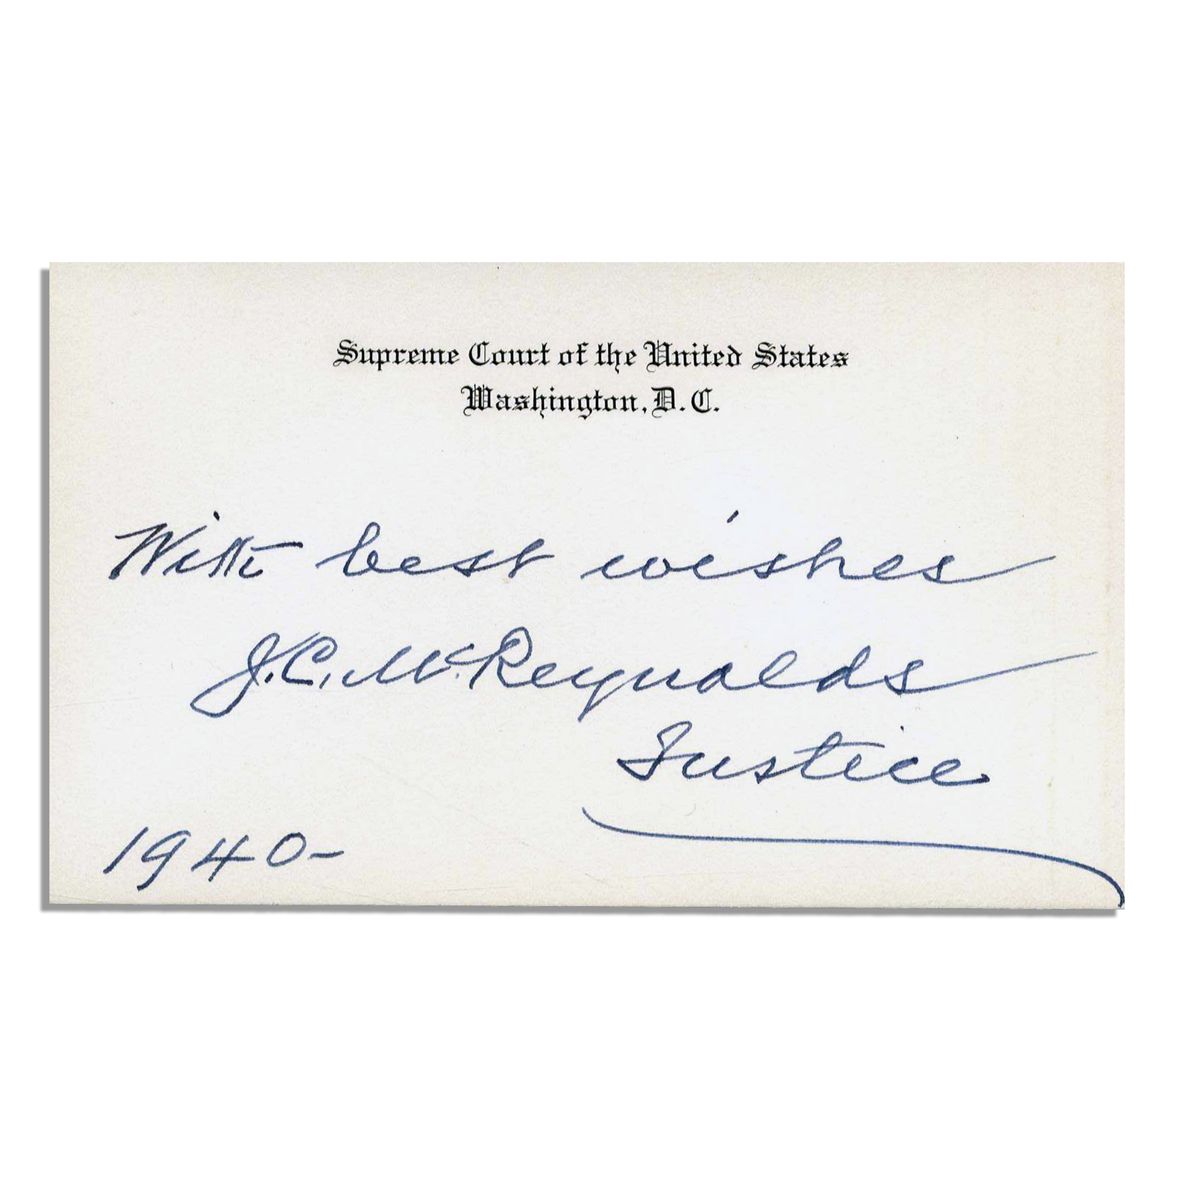 Supreme Court of the United States
Washington, D.C.
With best wishes
J.C. McReynolds
Justice
1940-